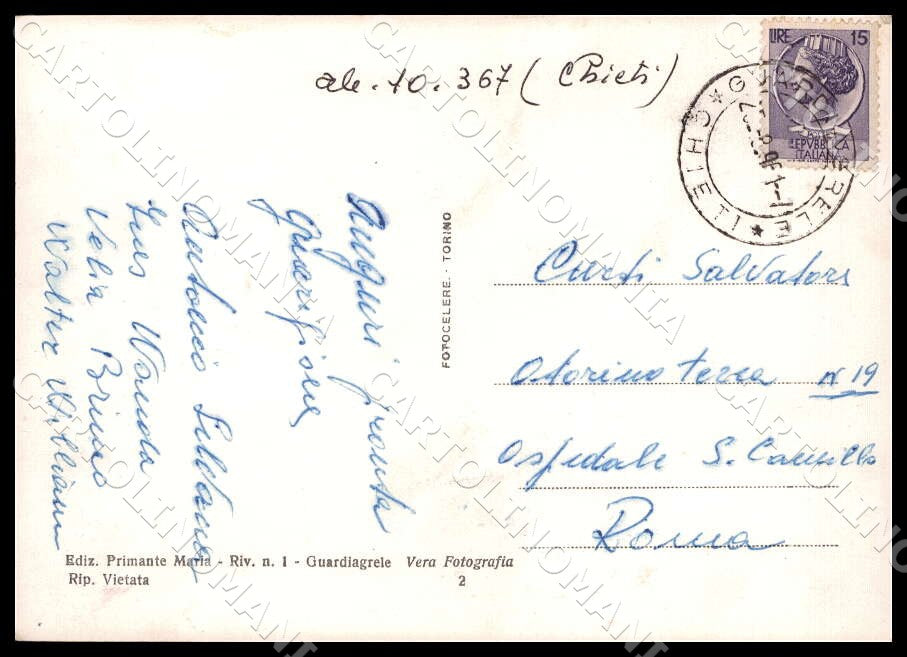 ale. 10. 367 (Chieti)
LIRE 15
REPVBBLICA
ITALIANA
GUARDIAGRELE
* CHIETI *
Auguri pronta
guarigione
Antonio Silvana
Ines Wanda
Velia Bruno
Walter William
FOTOCELERE. - TORINO
Curti Salvatore
Otorino terza N 19
Ospedale S. Camillo
Roma
Ediz. Primante Maria - Riv. n. 1 - Guardiagrele Vera Fotografia
Rip. Vietata
2
CARTOLINOMANIA